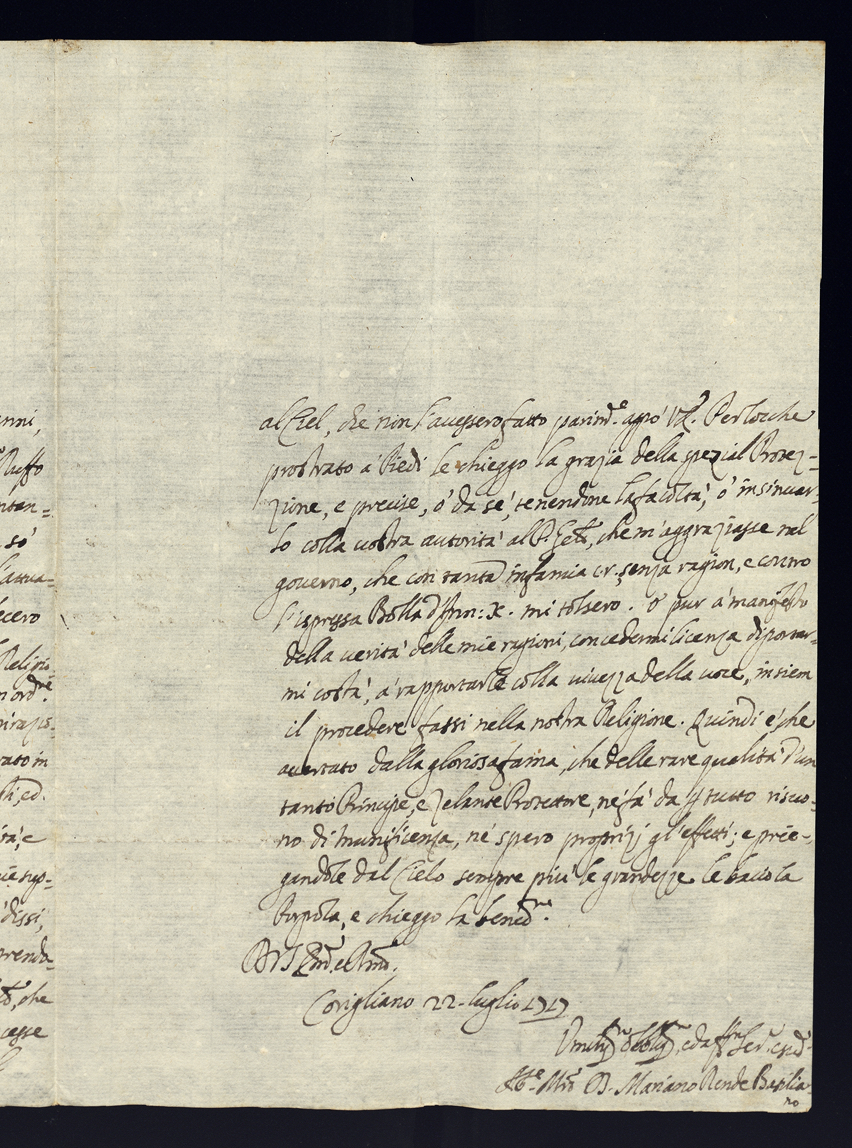 nni,
Ruffo
ntan=
so'
l'attua=
ecero
Religio
n ord.^e
rato in
ti, ed.
ità, e
sup=
dissi,
prendo=
che
cesse
al Ciel, che non l'avessero fatto parim.^e appo V.E. Per locche
prostrato a' Piedi le chieggo la grazia della spezial Protez=
zione, e precise, o' da se', tenendone la facoltà, o' insinuar=
lo colla vostra autorità al P. Gen̄le, che m'aggraziasse nel
governo, che con tanta infamia senza ragion, e contro
l'ispressa Bolla d'Inn: X. mi tolsero. O' pur a' manifesto
della verità delle mie ragioni, concedermi licenza di portar=
mi costà, a' rapportarle colla vivezza della voce, insiem
il procedere fassi nella nostra Religione. Quindi è, che
avertato dalla gloriosa fama, che delle rare qualità d'un
tanto Principe, e zelante Protettore, ne fà da p tutto risuo=
no di munificenza, ne spero proprizj gl'effetti; e prie=
gandole dal Cielo sempre più le grandezze le bacio la
Porpola, e chieggo la bened.^ne
D V S Em̄, e Rm̄.
Corigliano 22 luglio 1717
Umiliss.^o oblig.^o, ed aff.^mo Ser.^e
D. Mariano Rende Basilia=
no